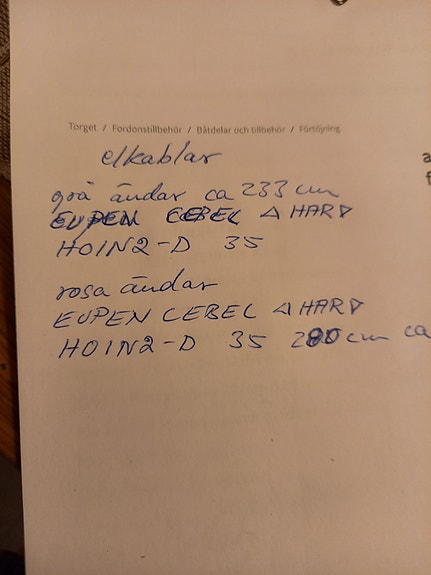 Torget / Fordonstillbehör / Båtdelar och tillbehör / Förtöjning
elkablar
grå ändar ca 233 cm
EUPEN CEBEL ◁ HARD ▷
HOIN2-D 35
rosa ändar
EUPEN CEBEL ◁ HARD ▷
HOIN2-D 35 280 cm ca
a
f